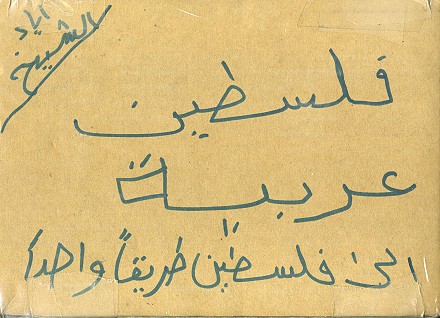 اياد
الشيخ
فلسطين
عربية
الى فلسطين طريقاً واحداً